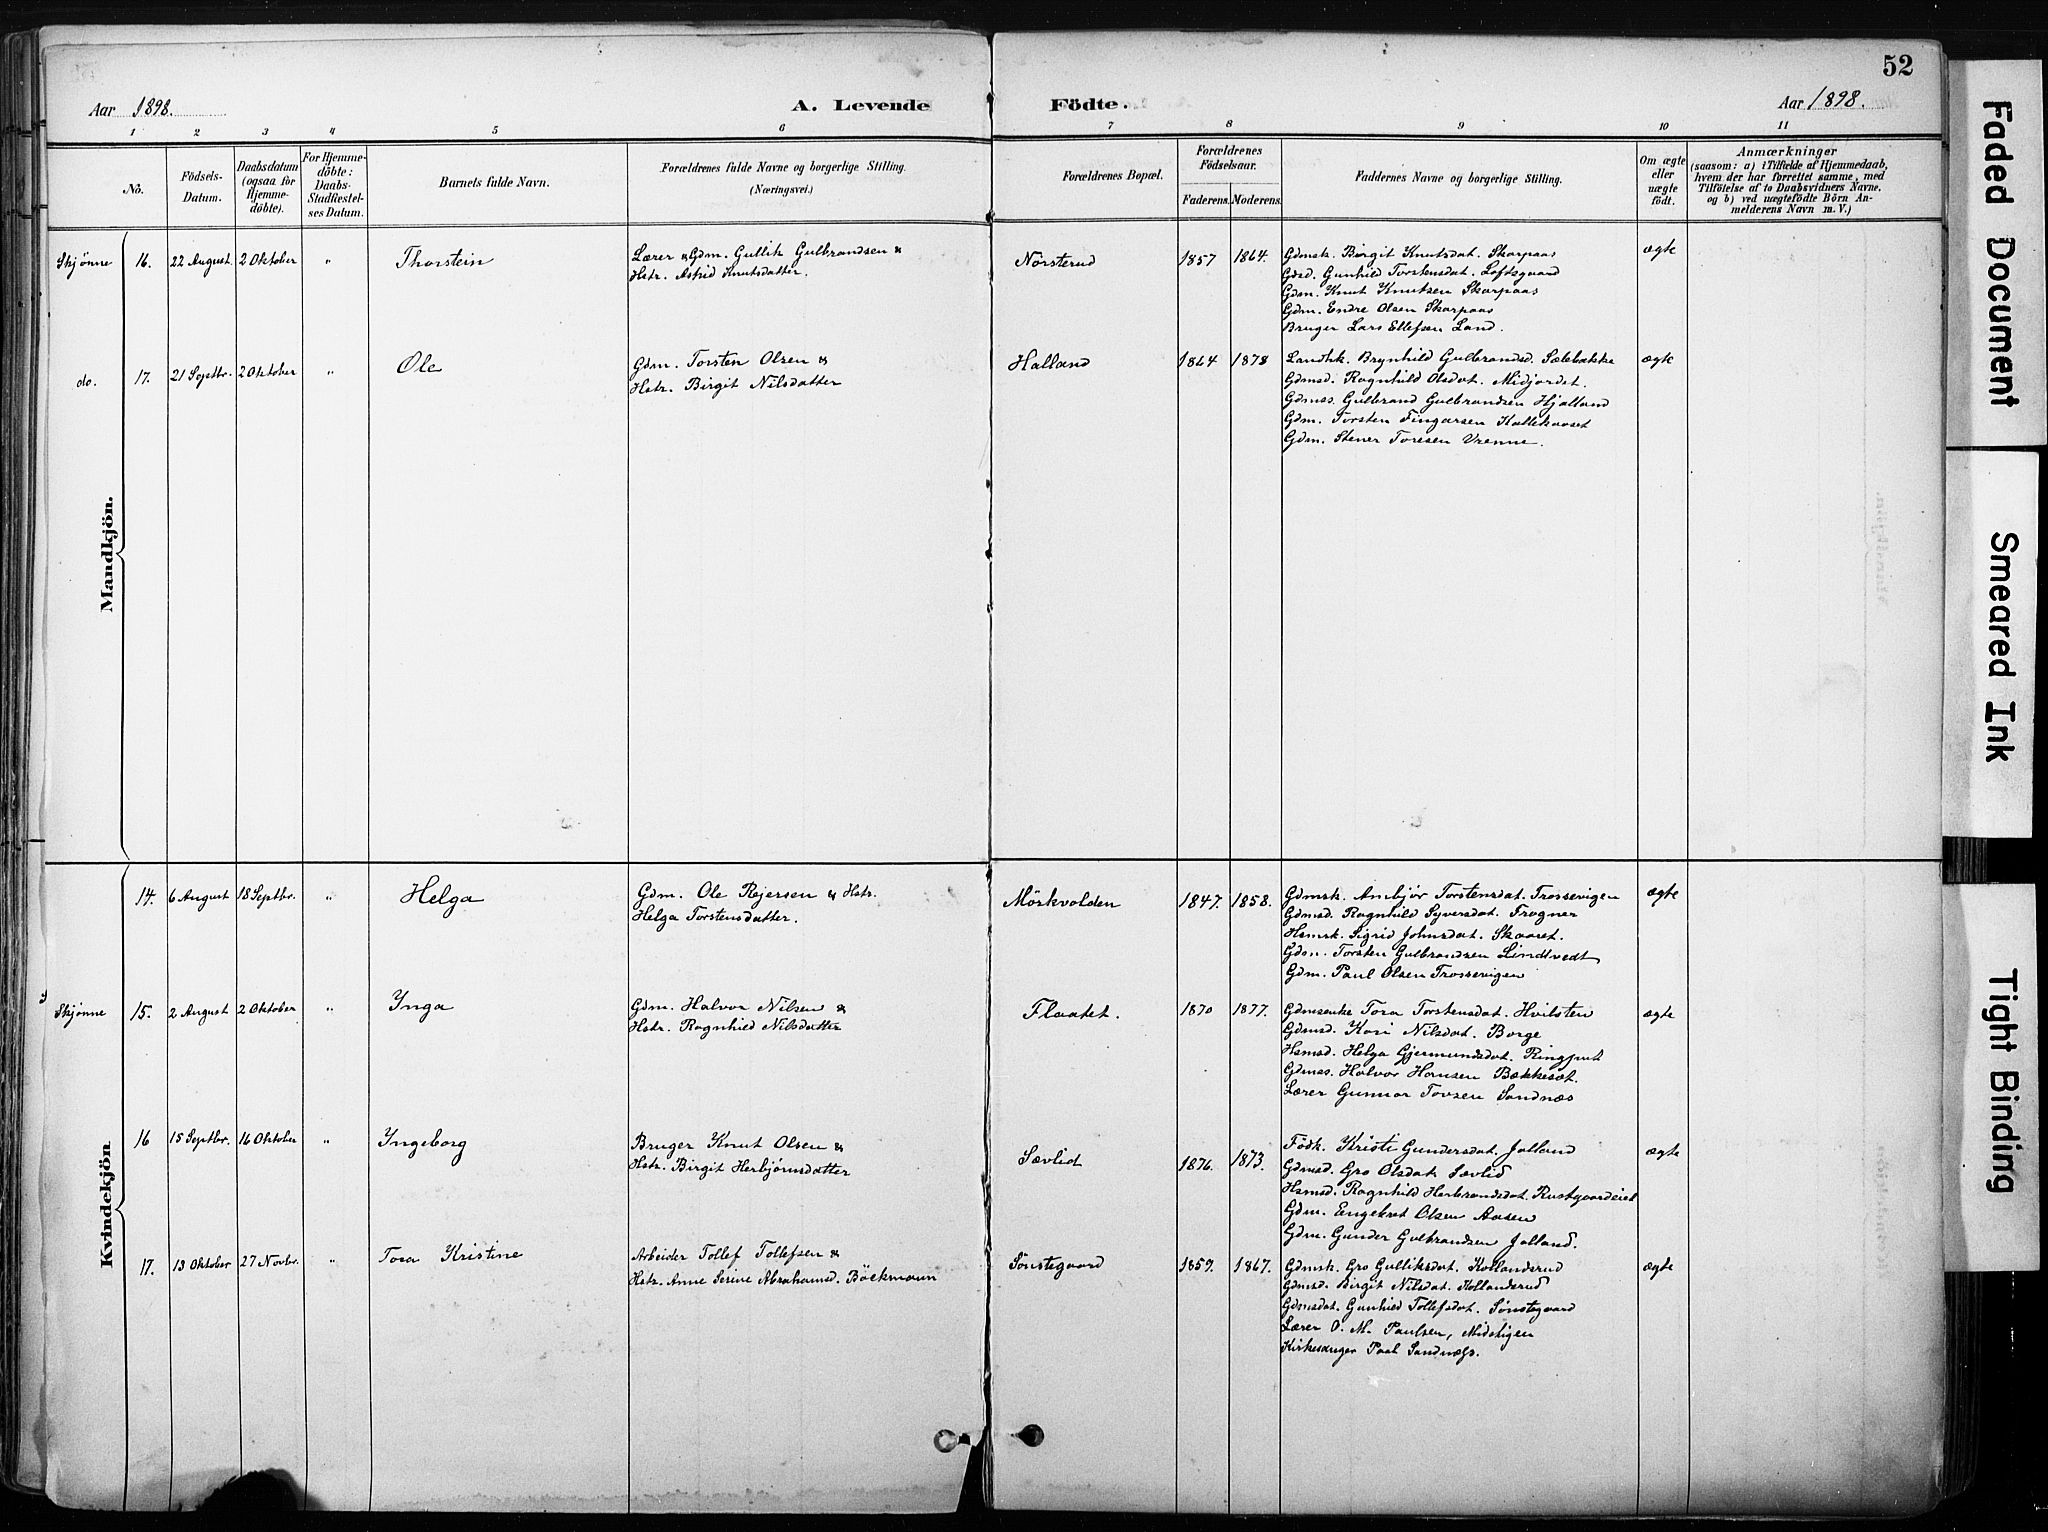 52
Aar 1898.
A. Levende Födte.
Aar 1898.
1 2 3 4 5 6 7 8 9 10 11
No.
Födsels-
Datum.
Daabsdatum
(ogsaa for
Hjemme-
döbte).
For Hjemme-
döbte:
Daabs-
Stadfæstel-
ses Datum.
Barnets fulde Navn.
Forældrenes fulde Navne og borgerlige Stilling.
(Næringsvei.)
Forældrenes Bopæl.
Forældrenes
Födselsaar.
Faderens. Moderens.
Faddernes Navne og borgerlige Stilling.
Om ægte
eller
uægte
födt.
Anmærkninger
(saasom: a) i Tilfælde af Hjemmedaab,
hvem der har forrettet samme, med
Tilföielse af to Daabsvidners Navne.
og b) ved uægtefödte Börn An-
melderens Navn m. V.)
Mandkjön.
Skjønne 16. 22 August. 2 Oktober " Thorstein
Lærer & Gdm. Gullik Gulbrandsen &
Hstr. Astrid Knutsdatter.
Nörsterud 1857 1864.
Gdmsk. Birgit Knutsdat. Skarpaas
Gdsd. Gunhild Torstensdat. Loftsgaard
Gdm. Knut Knutsen Skarpaas
Gdm. Endre Olsen Skarpaas
Bruger Lars Ellefsen Land.
ægte
do. 17. 21 Septbr. 2 Oktober " Ole
Gdm. Torsten Olsen &
Hstr. Birgit Nilsdatter
Halland 1864 1878
Landhk. Brynhild Gulbrandsd. Sælebække
Gdmsd. Ragnhild Olsdat. Midjordet.
Gdmss. Gulbrand Gulbrandsen Hjalland
Gdm. Torsten Fingarsen Kallekaaset
Gdm. Stener Toresen Vrenne.
ægte
Kvindekjön
14. 6 August 18 Septbr. " Helga
Gdm. Ole Rejersen & Hstr.
Helga Torstensdatter.
Mörkvolden 1847. 1858.
Gdmsk. Ambjør Torstensdat. Trossevigen
Gdmsd. Ragnhild Syversdat. Frogner
Hsmsk. Sigrid Johnsdat. Skaaret.
Gdm. Torsten Gulbrandsen Lindtvedt
Gdm. Paul Olsen Trossevigen
ægte
Skjønne 15. 2 August 2 Oktober " Ynga
Gdm. Halvor Nilsen &
Hstr. Ragnhild Nilsdatter
Flaatet. 1870 1877.
Gdmsenke Tora Torstensdat. Hvilsten
Gdmsd. Kari Nilsdat. Borge
Hsmsd. Helga Gjermundsdat. Ringput
Gdmss. Halvor Hansen Bækkesat.
Lærer Gunnar Tovsen Sandnæs
ægte
16 15 Septbr. 16 Oktober " Yngeborg
Bruger Knut Olsen &
Hstr. Birgit Herbjörnsdatter
Sævlid 1876. 1873.
Födk. Kristi Gundersdat. Jalland
Gdmsd. Gro Olsdat Sævlid
Hsmsd. Ragnhild Herbrandsdat. Rustgaardeiet
Gdm. Engebret Olsen Aasen
Gdm. Gunder Gulbrandsen Jalland.
ægte
17. 13 Oktober 27 Novbr. " Tora Kristine
Arbeider Tollef Tollefsen &
Hstr. Anne Serine Abrahamsd. Böckmann
Sönstegaard 1859. 1867.
Gdmsk. Gro Gulliksdat. Kollanderud
Gdmsd. Birgit Nilsdat. Kollanderud
Gdmsdat. Gunhild Tollefsdat. Sönstegaard
Lærer O. M. Paulsen, Midstigen
Kirkesanger Paal Sandnæss.
ægte
Faded Document
Smeared Ink
Tight Binding